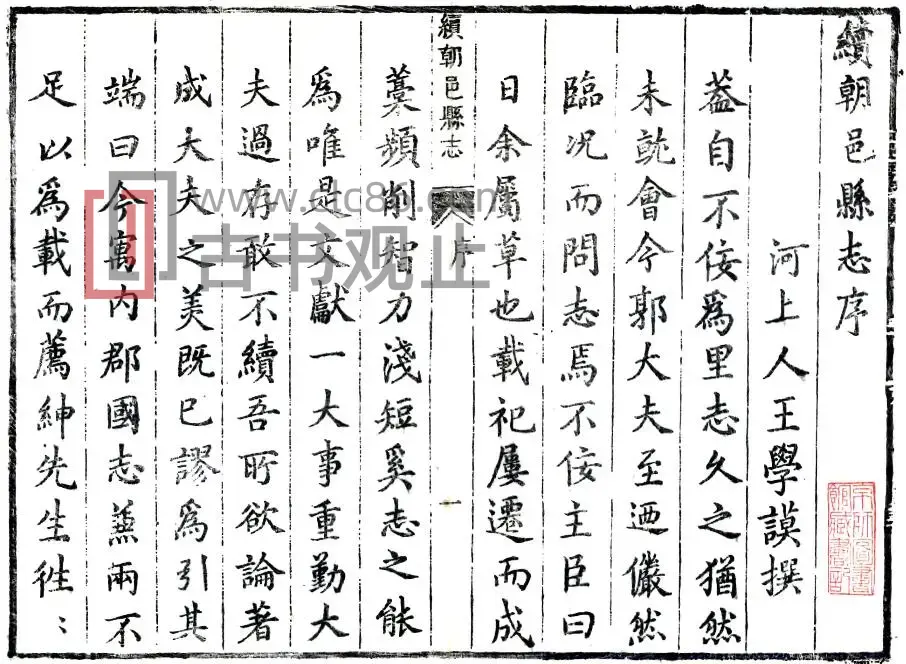 續朝邑縣志序
河上人王學謨撰
蓋自不佞爲里志久之猶然
未就會今郭大夫至迺儼然
臨况而問志焉不佞主臣曰
日余屬草也載祀屢遷而成
續朝邑縣志 序 一
藁頻削智力淺短奚志之能
爲唯是文獻一大事重勤大
夫過存敢不續吾所欲論著
成大夫之美既已謬爲引其
端曰今寓内郡國志兼兩不
足以爲載而薦紳先生徃〻
京師圖書
館藏書記
古书观止